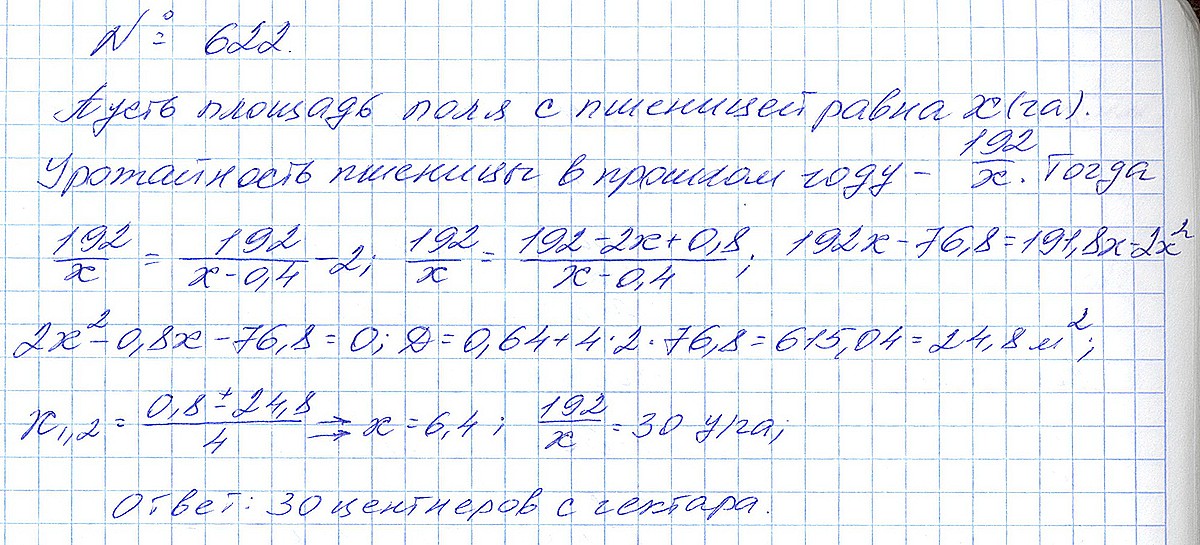 № 622.
Пусть площадь поля с пшеницей равна x(га).
Урожайность пшеницы в прошлом году – 192/x. Тогда
192/x = 192/(x-0,4) -2; 192/x = (192-2x+0,8)/(x-0,4); 192x-76,8=191,8x-2x²
2x²-0,8x-76,8=0; D=0,64+4·2·76,8=615,04=24,8м²;
x₁,₂= (0,8±24,8)/4 ⇒ x=6,4; 192/x =30 ц/га;
Ответ: 30 центнеров с гектара.